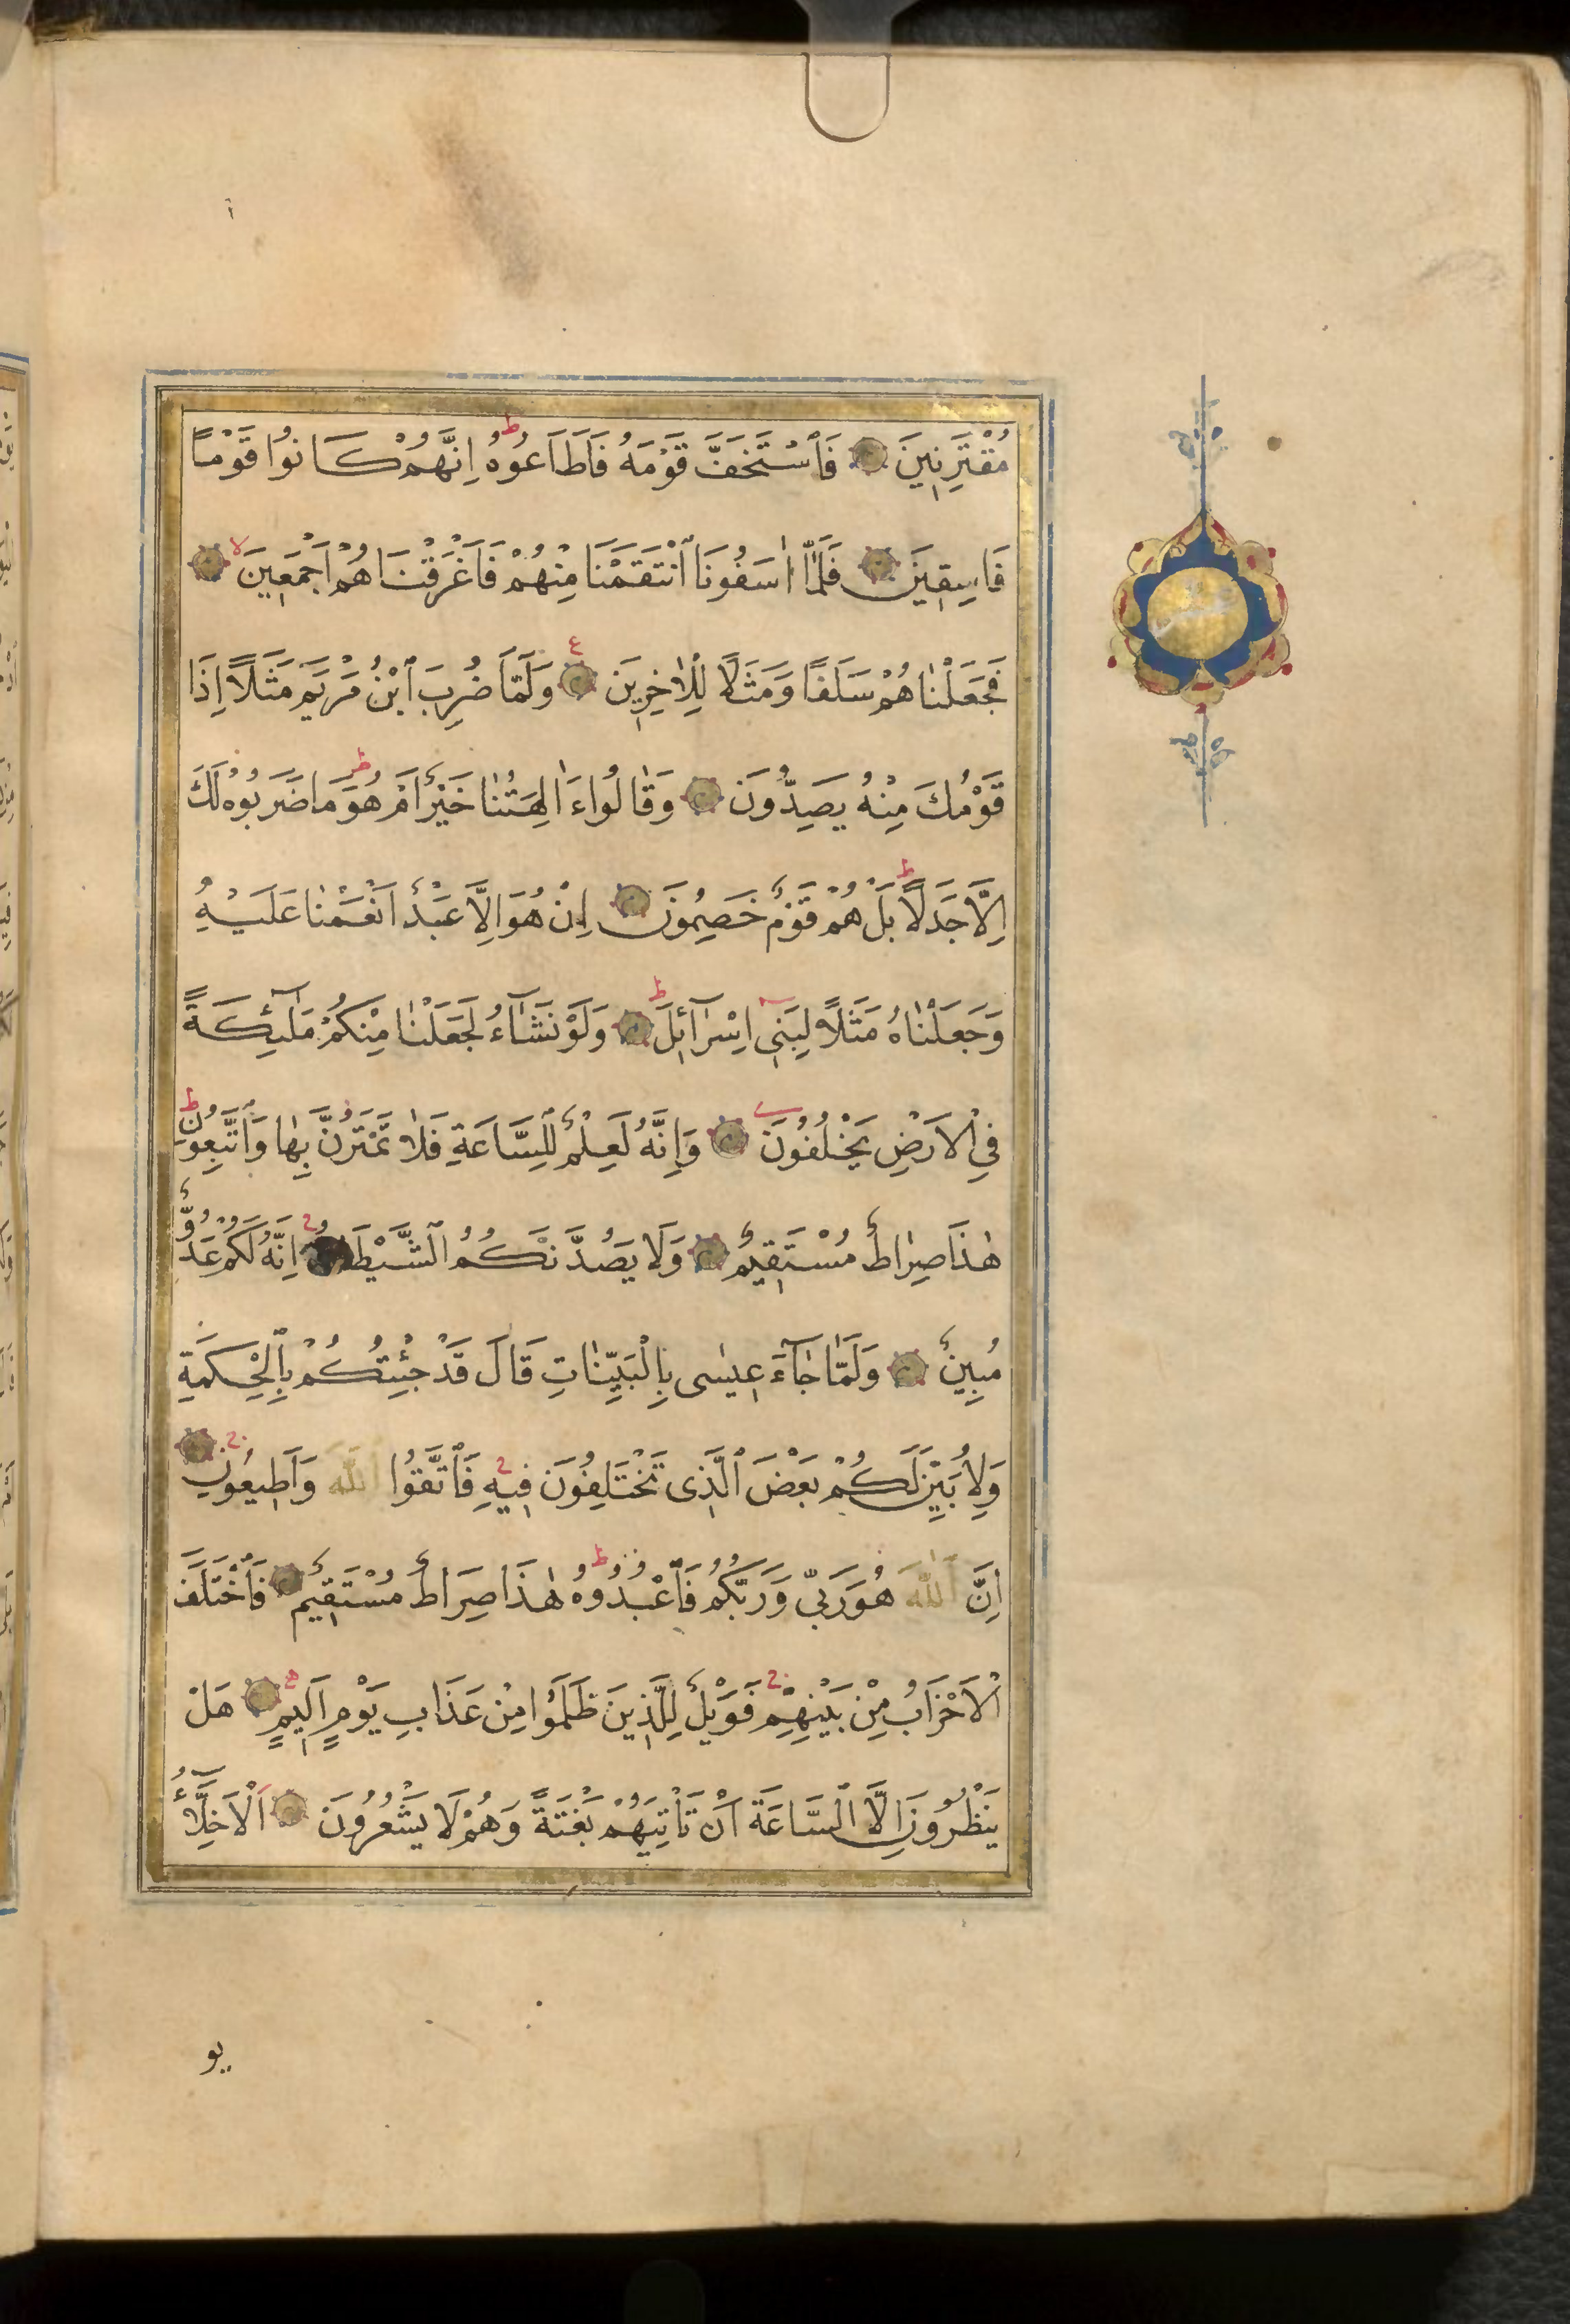 مُقْتَرِنِينَ فَٱسْتَخَفَّ قَوْمَهُ فَاَطَاعُوهُ ط اِنَّهُمْ كَانُوا قَوْمًا
فَاسِقِينَ فَلَمَّٓا اٰسَفُونَا ٱنْتَقَمْنَا مِنْهُمْ فَاَغْرَقْنَاهُمْ اَجْمَعِينَ لا
فَجَعَلْنٰاهُمْ سَلَفًا وَمَثَلًا لِلْاٰخِرِينَ ع وَلَمَّا ضُرِبَ ٱبْنُ مَرْيَمَ مَثَلًا اِذَا
قَوْمُكَ مِنْهُ يَصِدُّونَ وَقٰالُواءَ اٰلِهَتُنٰا خَيْرٌ اَمْ هُوَ ط مَا ضَرَبُوهُ لَكَ
اِلَّا جَدَلًا ط بَلْ هُمْ قَوْمٌ خَصِمُونَ اِنْ هُوَ اِلَّا عَبْدٌ اَنْعَمْنٰا عَلَيْهِ
وَجَعَلْنٰاهُ مَثَلًا لِبَنِٓى اِسْرَآئِلَ ط وَلَوْ نَشَآءُ لَجَعَلْنٰا مِنْكُمْ مَلٰٓئِكَةً
فِى ٱلْاَرْضِ يَخْلُفُونَ وَاِنَّهُ لَعِلْمٌ لِلسَّاعَةِ فَلٰا تَمْتَرُنَّ بِهٰا وَٱتَّبِعُونِ ط
هٰذَا صِرٰاطٌ مُسْتَقِيمٌ وَلَا يَصُدَّنَّكُمُ ٱلشَّيْطَانُ ج اِنَّهُ لَكُمْ عَدُوٌّ
مُبِينٌ وَلَمّٰا جٰٓاءَ عِيسٰى بِالْبَيِّنٰاتِ قَالَ قَدْ جِئْتُكُمْ بِٱلْحِكْمَةِ
وَلِاُبَيِّنَ لَكُمْ بَعْضَ ٱلَّذِى تَخْتَلِفُونَ فِيهِ ج فَٱتَّقُوا ٱللّٰهَ وَاَطِيعُونِ ج
اِنَّ ٱللّٰهَ هُوَ رَبِّى وَرَبُّكُمْ فَٱعْبُدُوهُ ط هٰذَا صِرَاطٌ مُسْتَقِيمٌ فَٱخْتَلَفَ
ٱلْاَحْزَابُ مِنْ بَيْنِهِمْ ج فَوَيْلٌ لِلَّذِينَ ظَلَمُوا مِنْ عَذَابِ يَوْمٍ اَلِيمٍ هَلْ
يَنْظُرُونَ اِلَّا ٱلسَّاعَةَ اَنْ تَأْتِيَهُمْ بَغْتَةً وَهُمْ لَا يَشْعُرُونَ اَلْاَخِلَّٓاءُ
يو